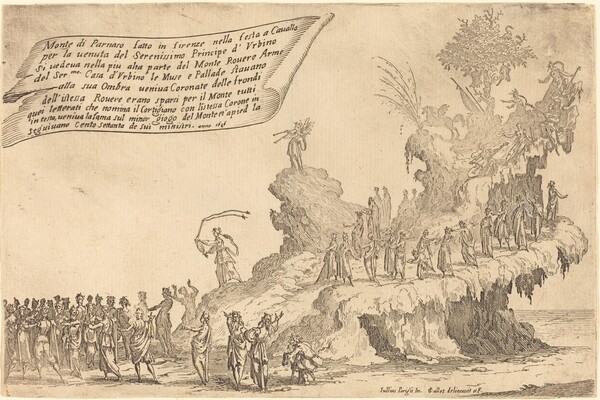 Monte di Parnaso fatto in firenze nella festa a Cavallo
per la venuta del Serenissimo Principe d' Vrbino
Si vedeva nella piu alta parte del Monte Rouere Arme
del Ser.mo Casa d'Vrbino le Muse e Pallade stauano
alla sua Ombra veniua Coronate delle frondi
dell'istessa Rouere erano sparsi per il Monte tutti
quei letterati che nomina il Cortigiano con l'istessa Corone in
testa, veniua la fama sul minor giogo del Monte et apied la
seguiuano Cento settanta de sui ministri. anno 1616
Iullius Parisii In. Callot delineauit et F.